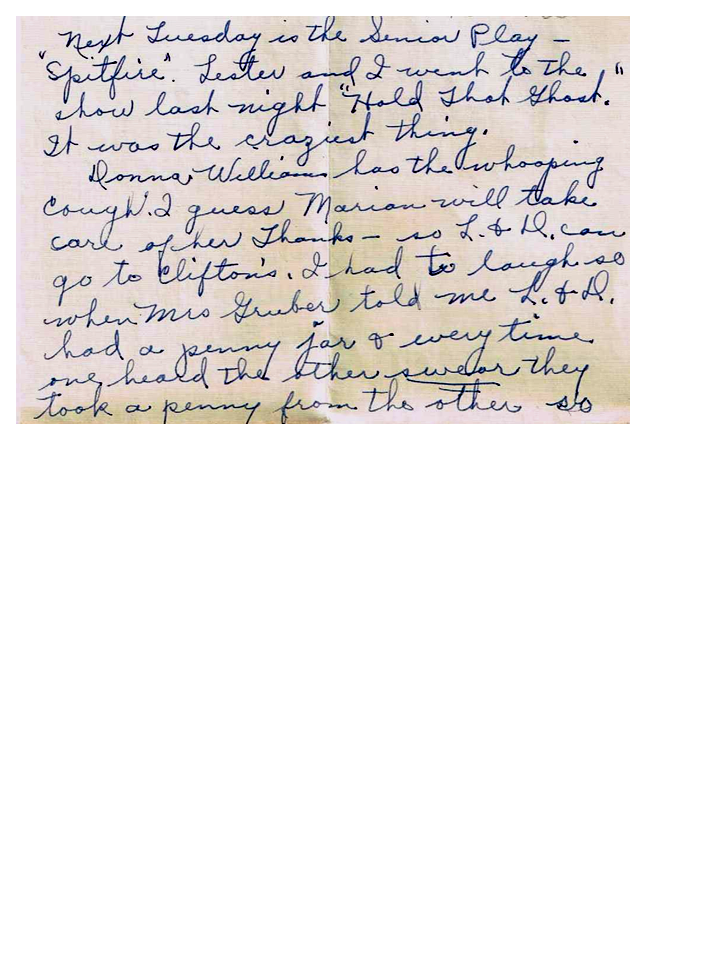 Next Tuesday is the Senior Play –
"Spitfire". Lester and I went to the
show last night "Hold That Ghost."
It was the craziest thing.
Donna Williams has the whooping
cough. I guess Marian will take
care of her Thanks – so L. & D. can
go to Clifton's. I had to laugh so
when Mrs Gruber told me L. & D.
had a penny jar & every time
one heard the other swear they
took a penny from the other so